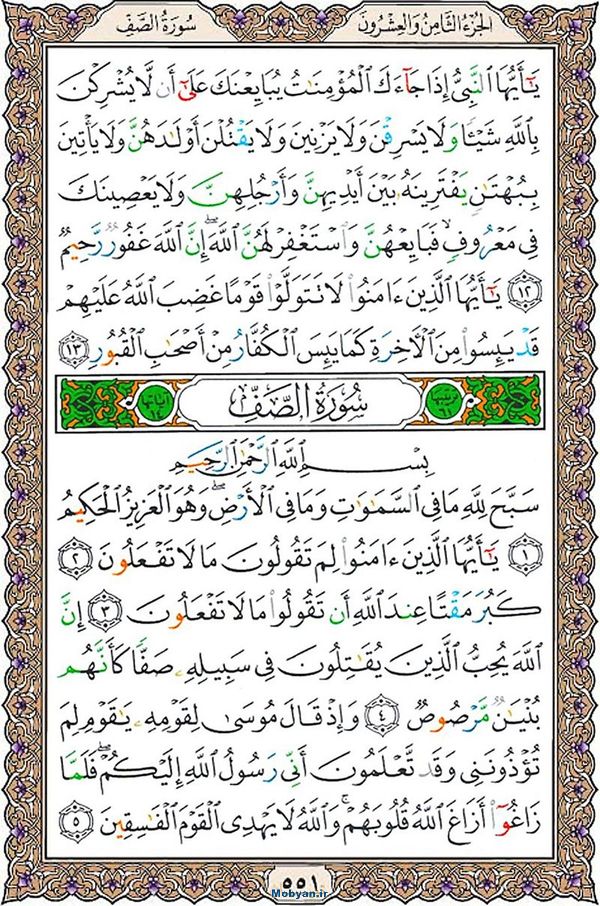 الجزء الثامن والعشرون
سورة الصف
يَٰٓأَيُّهَا ٱلنَّبِيُّ إِذَا جَآءَكَ ٱلْمُؤْمِنَٰتُ يُبَايِعْنَكَ عَلَىٰٓ أَن لَّا يُشْرِكْنَ
بِٱللَّهِ شَيْـًٔا وَلَا يَسْرِقْنَ وَلَا يَزْنِينَ وَلَا يَقْتُلْنَ أَوْلَٰدَهُنَّ وَلَا يَأْتِينَ
بِبُهْتَٰنٍ يَفْتَرِينَهُۥ بَيْنَ أَيْدِيهِنَّ وَأَرْجُلِهِنَّ وَلَا يَعْصِينَكَ
فِى مَعْرُوفٍ ۙ فَبَايِعْهُنَّ وَٱسْتَغْفِرْ لَهُنَّ ٱللَّهَ ۖ إِنَّ ٱللَّهَ غَفُورٌ رَّحِيمٌ
١٢ يَٰٓأَيُّهَا ٱلَّذِينَ ءَامَنُوا۟ لَا تَتَوَلَّوْا۟ قَوْمًا غَضِبَ ٱللَّهُ عَلَيْهِمْ
قَدْ يَئِسُوا۟ مِنَ ٱلْءَاخِرَةِ كَمَا يَئِسَ ٱلْكُفَّارُ مِنْ أَصْحَٰبِ ٱلْقُبُورِ ١٣
ترتيبها ٦١
سُورَةُ الصَّفِّ
آياتها ١٤
بِسْمِ ٱللَّهِ ٱلرَّحْمَٰنِ ٱلرَّحِيمِ
سَبَّحَ لِلَّهِ مَا فِى ٱلسَّمَٰوَٰتِ وَمَا فِى ٱلْأَرْضِ ۖ وَهُوَ ٱلْعَزِيزُ ٱلْحَكِيمُ
١ يَٰٓأَيُّهَا ٱلَّذِينَ ءَامَنُوا۟ لِمَ تَقُولُونَ مَا لَا تَفْعَلُونَ ٢
كَبُرَ مَقْتًا عِندَ ٱللَّهِ أَن تَقُولُوا۟ مَا لَا تَفْعَلُونَ ٣ إِنَّ
ٱللَّهَ يُحِبُّ ٱلَّذِينَ يُقَٰتِلُونَ فِى سَبِيلِهِۦ صَفًّا كَأَنَّهُم
بُنْيَٰنٌ مَّرْصُوصٌ ٤ وَإِذْ قَالَ مُوسَىٰ لِقَوْمِهِۦ يَٰقَوْمِ لِمَ
تُؤْذُونَنِى وَقَد تَّعْلَمُونَ أَنِّى رَسُولُ ٱللَّهِ إِلَيْكُمْ ۖ فَلَمَّا
زَاغُوٓا۟ أَزَاغَ ٱللَّهُ قُلُوبَهُمْ ۚ وَٱللَّهُ لَا يَهْدِى ٱلْقَوْمَ ٱلْفَٰسِقِينَ ٥
٥٥١
Mobyan.ir